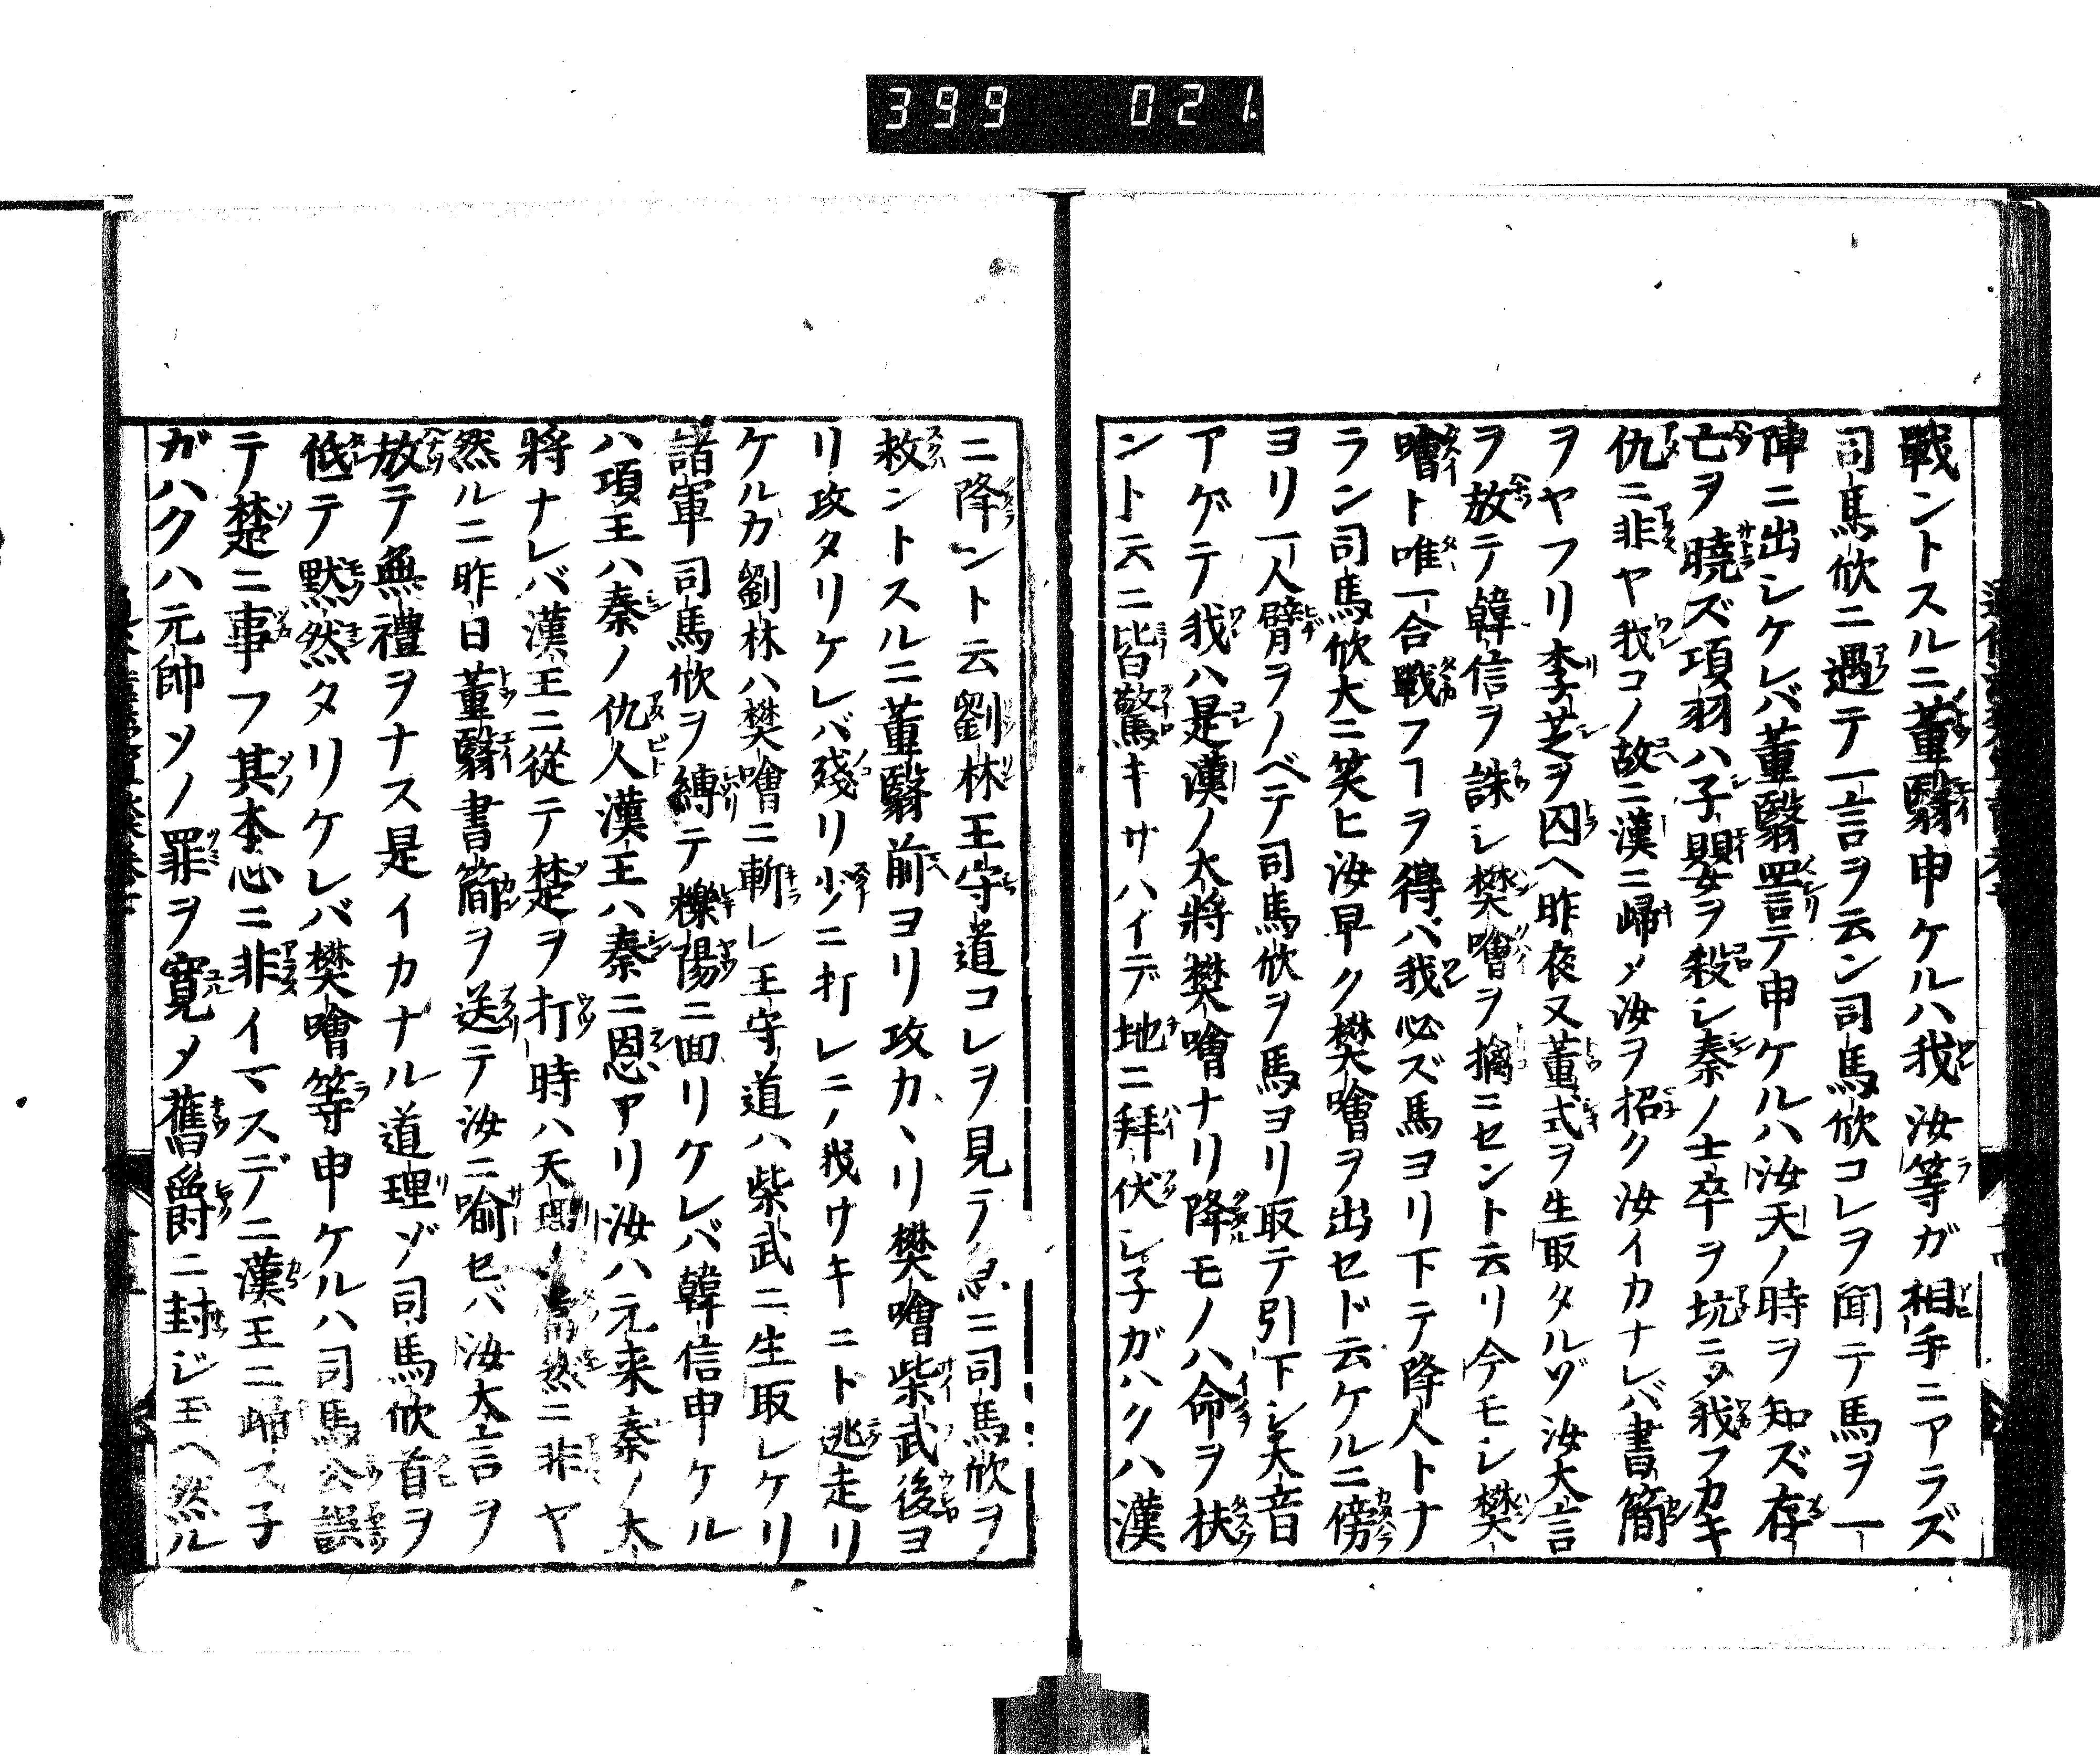 399 021
戰ントスルニ董翳申ケルハ我汝等ガ相手ニアラズ
司馬欣ニ遇テ一言ヲ云ン司馬欣コレヲ聞テ馬ヲ一
陣ニ出シケレバ董翳詈テ申ケルハ汝天ノ時ヲ知ズ存
亡ヲ曉ズ項羽ハ子嬰ヲ殺シ秦ノ士卒ヲ坑ニ我フカキ
仇ニ非ヤ我コノ故ニ漢ニ歸メ汝ヲ招ク汝イカナレバ書簡
ヲヤフリ李芝ヲ囚ヘ昨夜又董式ヲ生取タルゾ汝大言
ヲ放テ韓信ヲ誅シ樊噲ヲ擒ニセント云リ今モシ樊
噲ト唯一合戰フヿヲ得バ我必ズ馬ヨリ下テ降人トナ
ラン司馬欣大ニ笑ヒ汝早ク樊噲ヲ出セド云ケルニ傍
ヨリ一人臂ヲノベテ司馬欣ヲ馬ヨリ取テ引下シ大音
アゲテ我ハ是漢ノ大將樊噲ナリ降モノハ命ヲ扶
ント云ニ皆驚キサハイデ地ニ拜伏シ子ガハクハ漢
ニ降ント云劉林王守道コレヲ見テ急ニ司馬欣ヲ
救ントスルニ董翳前ヨリ攻カヽリ樊噲柴武後ヨ
リ攻タリケレバ殘リ少ニ打レニノ我サキニト逃走リ
ケルカ劉林ハ樊噲ニ斬レ王守道ハ柴武ニ生取レケリ
諸軍司馬欣ヲ縛テ櫟陽ニ回リケレバ韓信申ケル
ハ項王ハ秦ノ仇人漢王ハ秦ニ恩アリ汝ハ元来秦ノ大
將ナレバ漢王ニ從テ楚ヲ打時ハ天理ノ當然ニ非ヤ
然ルニ昨日董翳書簡ヲ送テ汝ニ喻セバ汝大言ヲ
放テ無禮ヲナス是イカナル道理ゾ司馬欣首ヲ
低テ黙然タリケレバ樊噲等申ケルハ司馬公誤
テ楚ニ事フ其本心ニ非イマスデニ漢王ニ歸ス子
ガハクハ元帥ソノ罪ヲ寬メ舊爵ニ封ジ玉ヘ然ル